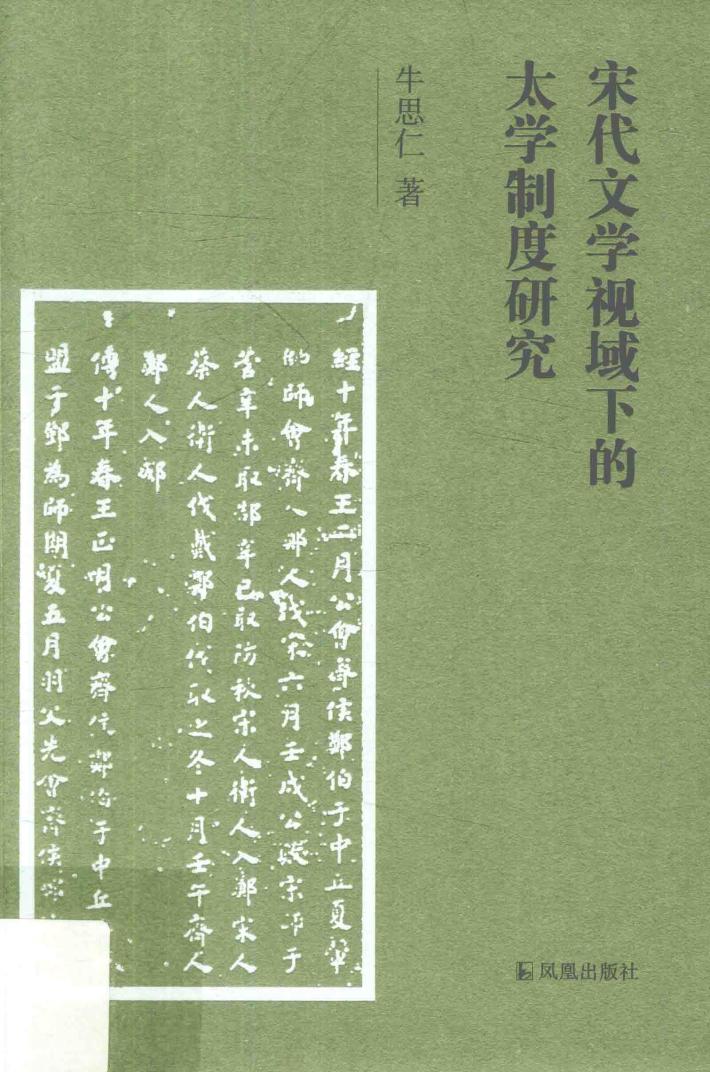 宋代文学视域下的
太学制度研究
牛思仁 著
經十年春王二月公會齊侯鄭伯于中丘夏翬
帥師會齊人鄭人伐宋六月壬戌公敗宋師于
菅辛未取郜辛巳取防秋宋人衛人入鄭宋人
蔡人衛人伐戴鄭伯伐取之冬十月壬午齊人
鄭人入郕
傳十年春王正月公會齊侯鄭伯于中丘
盟于鄧為師期夏五月羽父先會齊侯
凤凰出版社